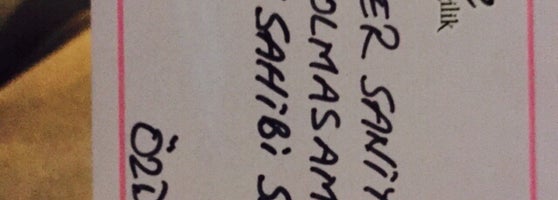 ilik
ER SANİY
OLMASAM
SAHİBİ S
ÖZÜ